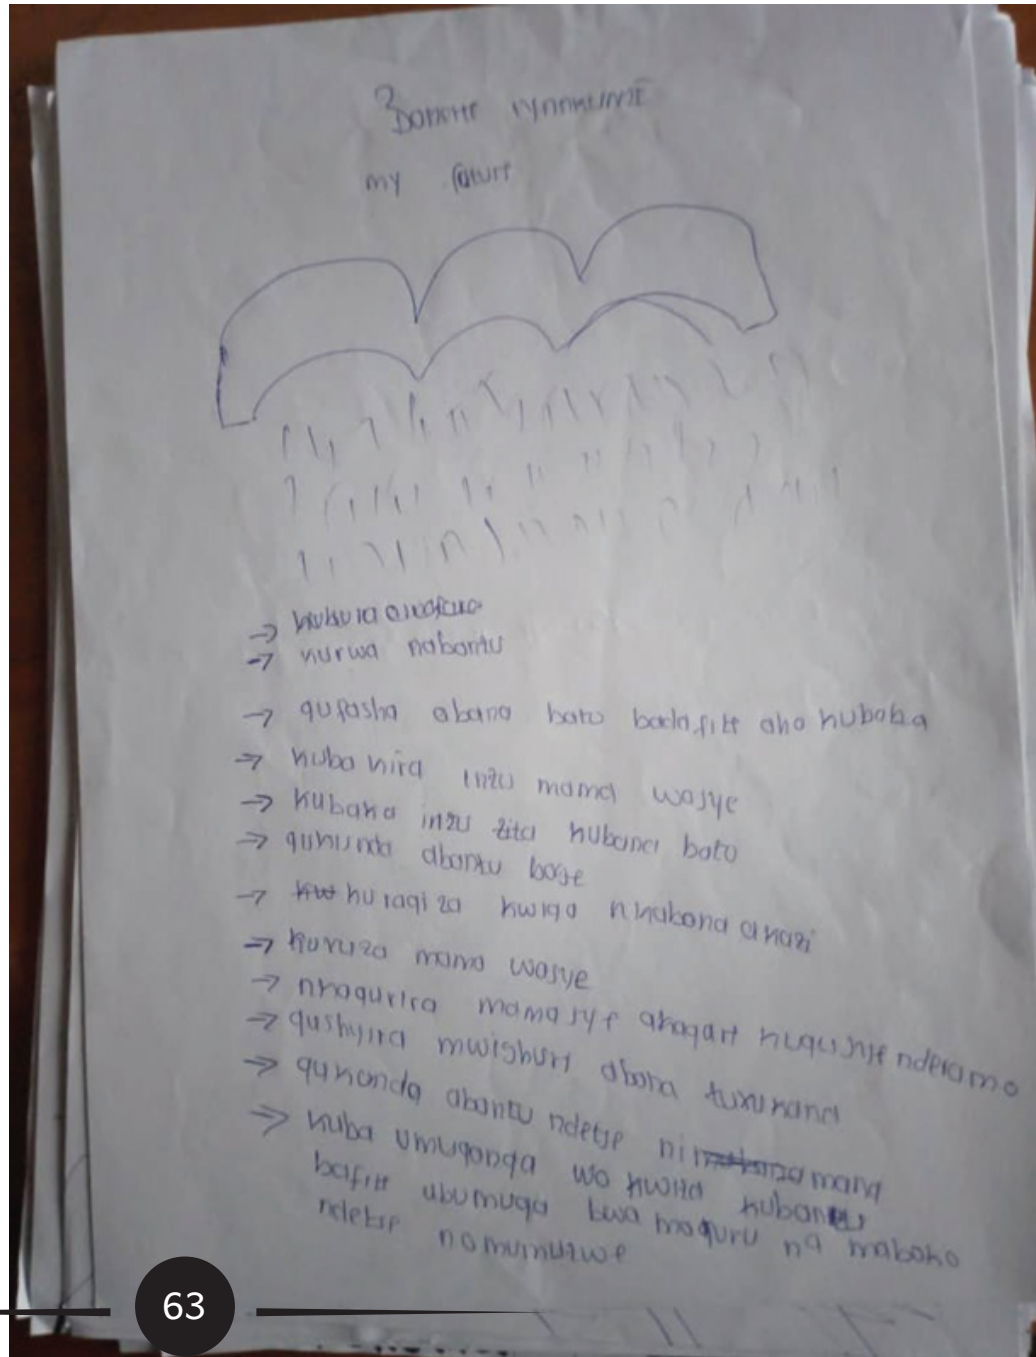 my future
→ kukura
→ kurwa nabantu
→ gufasha abana bato badafite aho kubaba
→ kubakira inzu mama wajye
→ kubaka inzu zita kubana bato
→ gukunda abantu bose
→ kuragiza kwiga nkabona akazi
→ kuvuza mama wajye
→ nkagurira mama jye akagare
→ gushyira mwishuri abana tuturana
→ gukonda abantu ndetse
→ kuba umuganga wo kwita kubantu
bafite ubumuga bwa maguru na maboko
ndetse nomumutwe
63